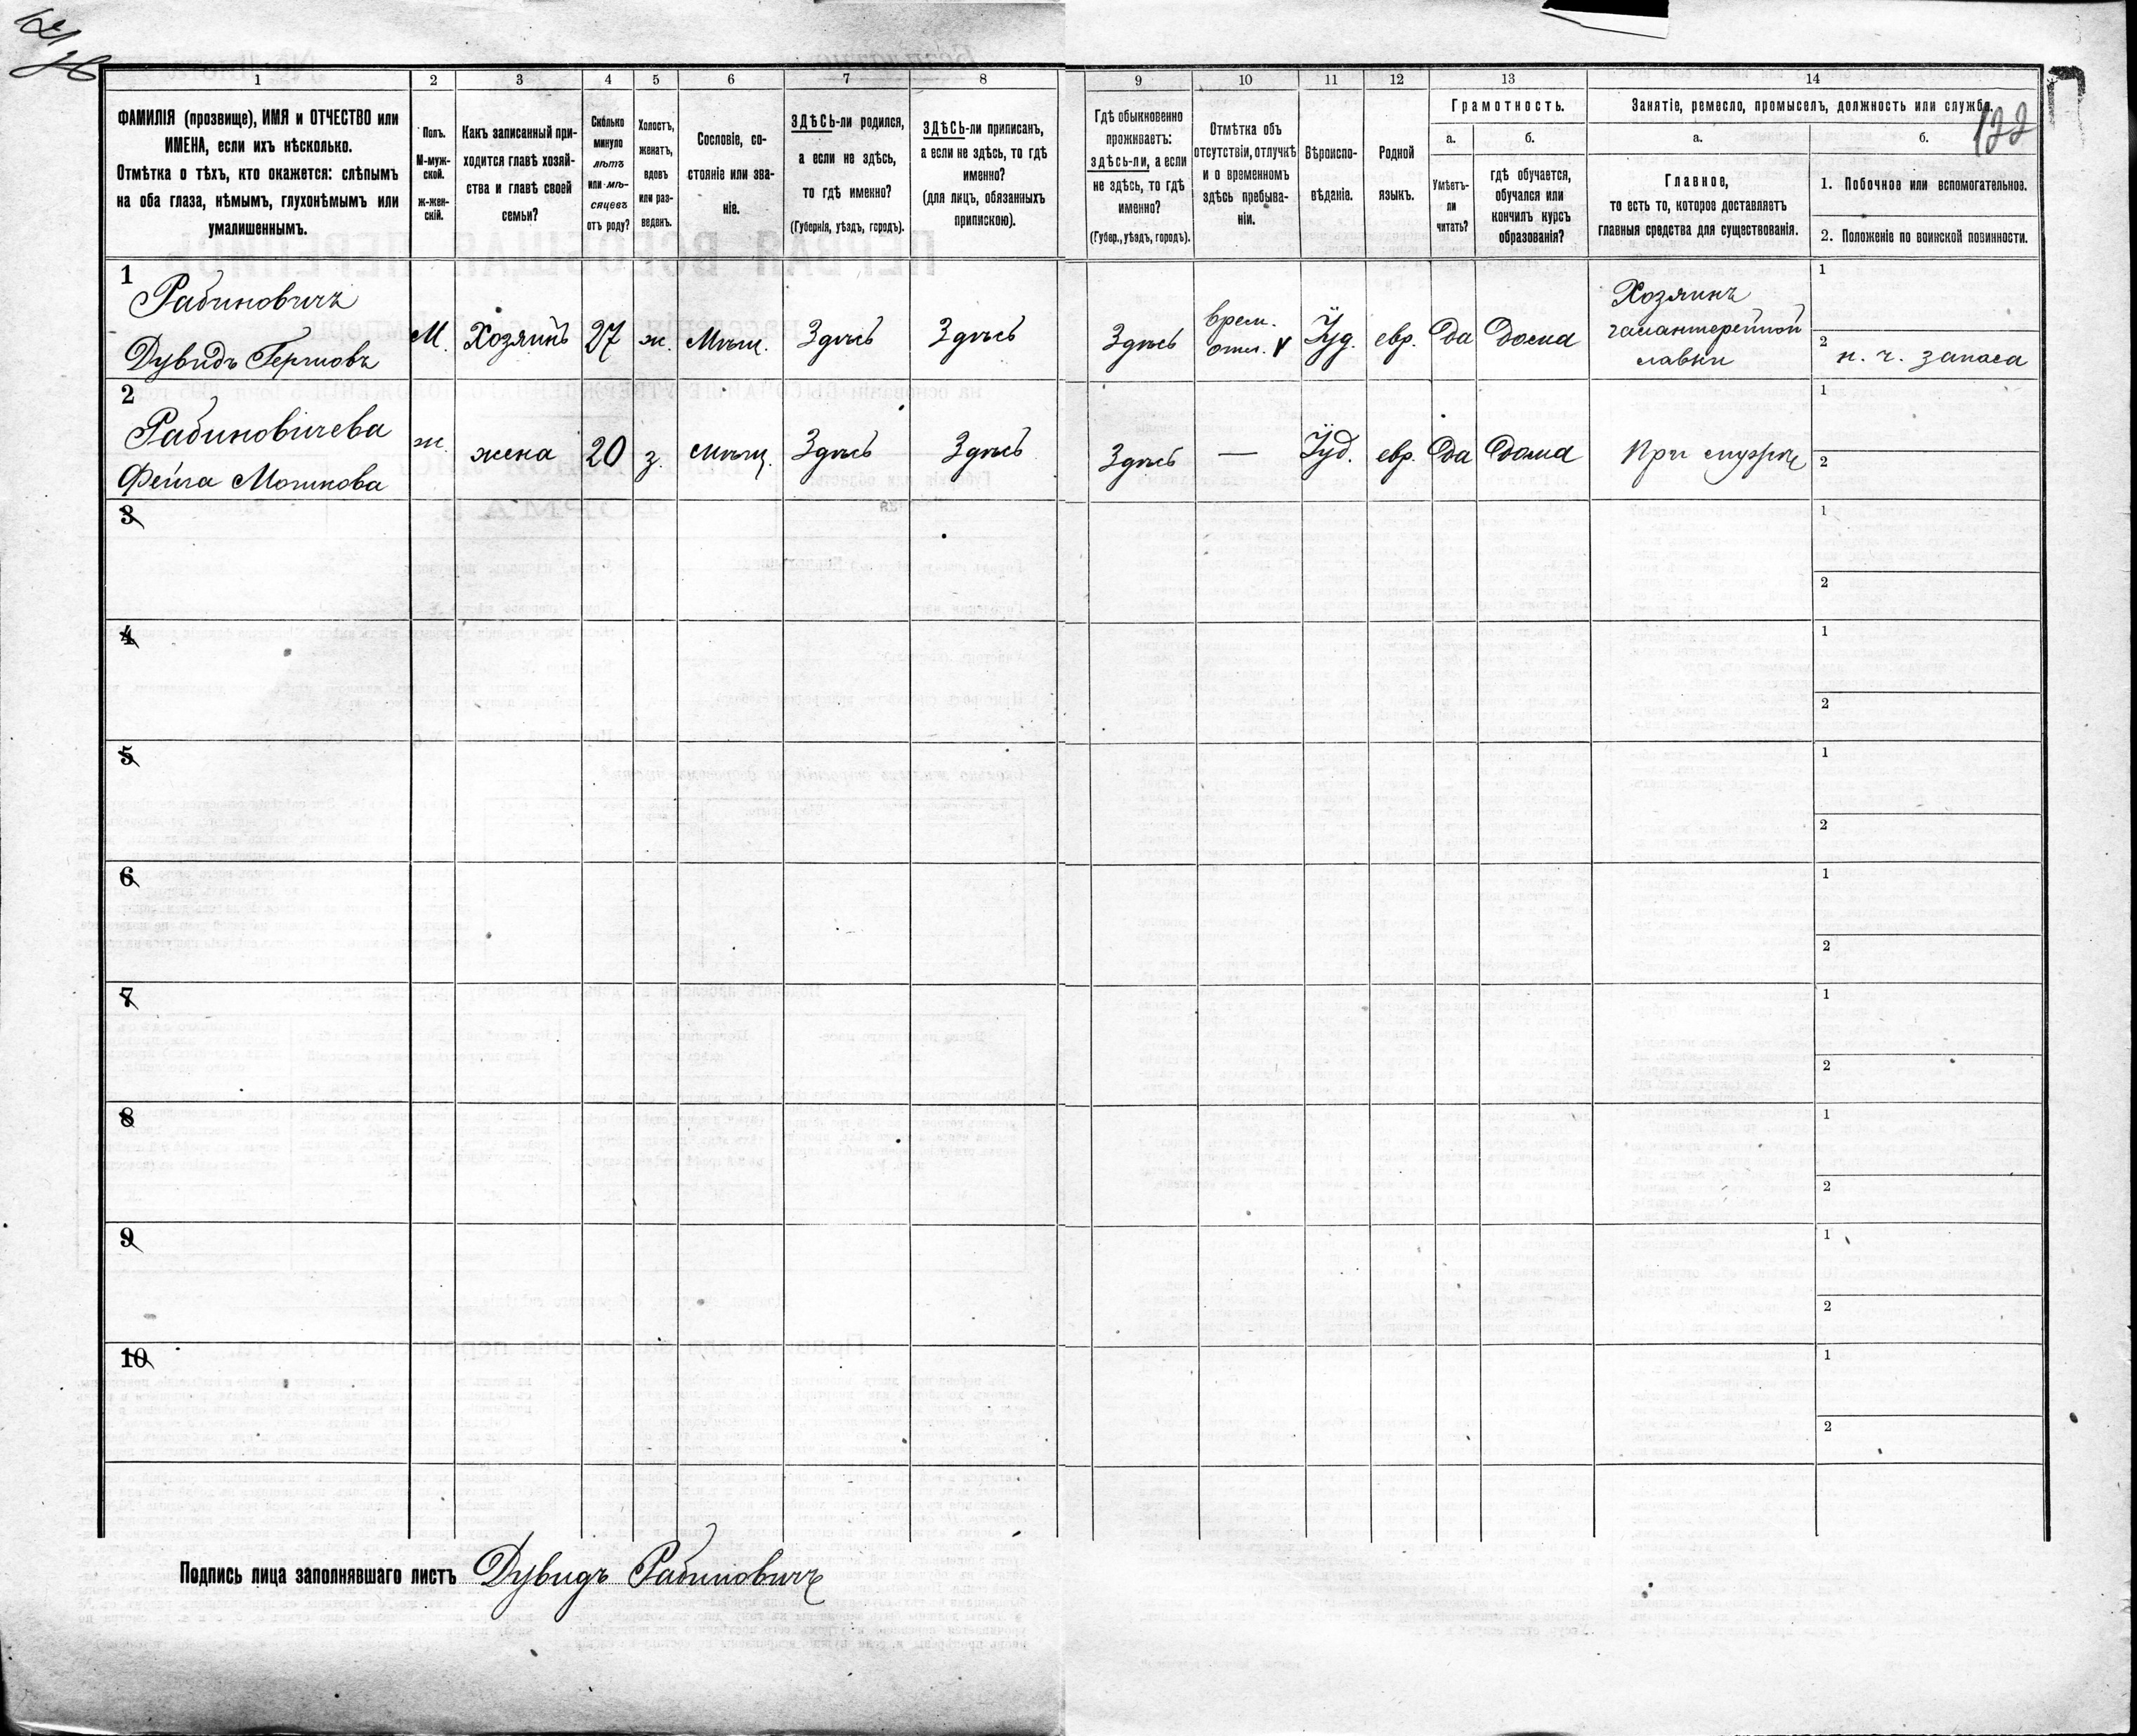 122
1 2 3 4 5 6 7 8 9 10 11 12 13 14
ФАМИЛІЯ (прозвище), ИМЯ и ОТЧЕСТВО или
ИМЕНА, если ихъ нѣсколько.
Отмѣтка о тѣхъ, кто окажется: слѣпымъ
на оба глаза, нѣмымъ, глухонѣмымъ или
умалишеннымъ.
Полъ.
М-муж-
ской.
ж-жен-
скій.
Какъ записанный при-
ходится главѣ хозяй-
ства и главѣ своей
семьи?
Сколько
минуло
лѣтъ
или мѣ-
сяцевъ
отъ роду?
Холостъ,
женатъ,
вдовъ
или раз-
веденъ.
Сословіе, со-
стояніе или зва-
ніе.
ЗДѢСЬ-ли родился,
а если не здѣсь,
то гдѣ именно?
(Губернія, уѣздъ, городъ).
ЗДѢСЬ-ли приписанъ,
а если не здѣсь, то гдѣ
именно?
(для лицъ, обязанныхъ
припискою).
Гдѣ обыкновенно
проживаетъ:
здѣсь-ли, а если
не здѣсь, то гдѣ
именно?
(Губер., уѣздъ, городъ).
Отмѣтка объ
отсутствіи, отлучкѣ
и о временномъ
здѣсь пребыва-
ніи.
Вѣроиспо-
вѣданіе.
Родной
языкъ.
Грамотность.
а.
Умѣетъ-
ли
читать?
б.
гдѣ обучается,
обучался или
кончилъ курсъ
образованія?
Занятіе, ремесло, промыселъ, должность или служба.
а.
Главное,
то есть то, которое доставляетъ
главныя средства для существованія.
б.
1. Побочное или вспомогательное.
2. Положеніе по воинской повинности.
1
Рабиновичъ
Дувидъ Гершовъ
М.
Хозяинъ
27
ж.
Мѣщ.
Здѣсь
Здѣсь
Здѣсь
врем.
отл. V
Іуд.
евр.
Да
Дома
Хозяинъ
галантерейной
лавки
1
2
н. ч. запаса
2
Рабиновичева
Фейга Мошкова
ж.
жена
20
з.
мѣщ.
Здѣсь
Здѣсь
Здѣсь
—
Іуд.
евр.
Да
Дома
При мужѣ
1
2
3
1
2
4
1
2
5
1
2
6
1
2
7
1
2
8
1
2
9
1
2
10
1
2
Подпись лица заполнявшаго листъ Дувидъ Рабиновичъ